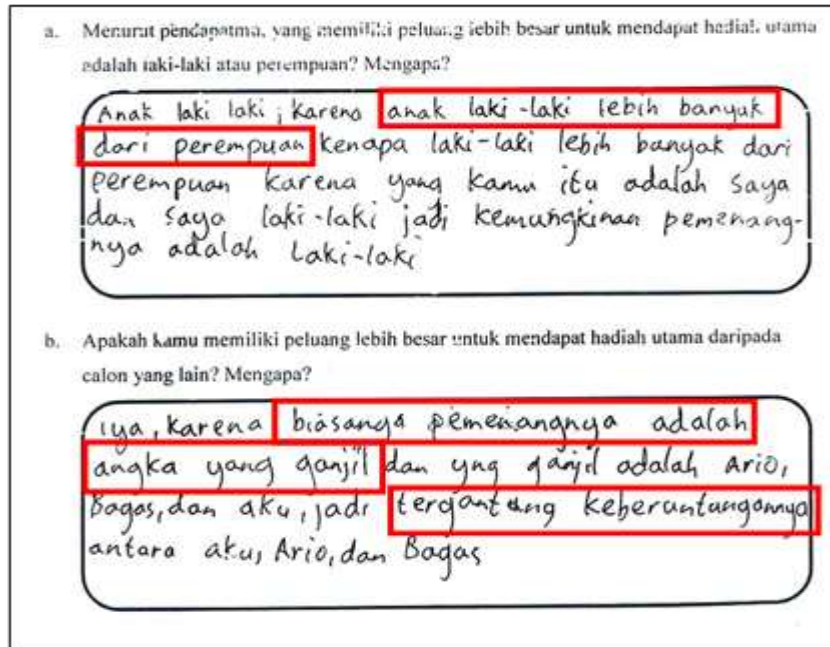 a. Menurut pendapatmu, yang memiliki peluang lebih besar untuk mendapat hadiah utama
adalah laki-laki atau perempuan? Mengapa?
Anak laki laki ; Karena anak laki-laki lebih banyak
dari perempuan kenapa laki-laki lebih banyak dari
perempuan karena yang kamu itu adalah saya
dan saya laki-laki jadi kemungkinan pemenang-
nya adalah laki-laki
b. Apakah kamu memiliki peluang lebih besar untuk mendapat hadiah utama daripada
calon yang lain? Mengapa?
iya, karena biasanya pemenangnya adalah
angka yang ganjil dan yng ganjil adalah Ario,
Bagas, dan aku, jadi tergantung keberuntungannya
antara aku, Ario, dan Bagas